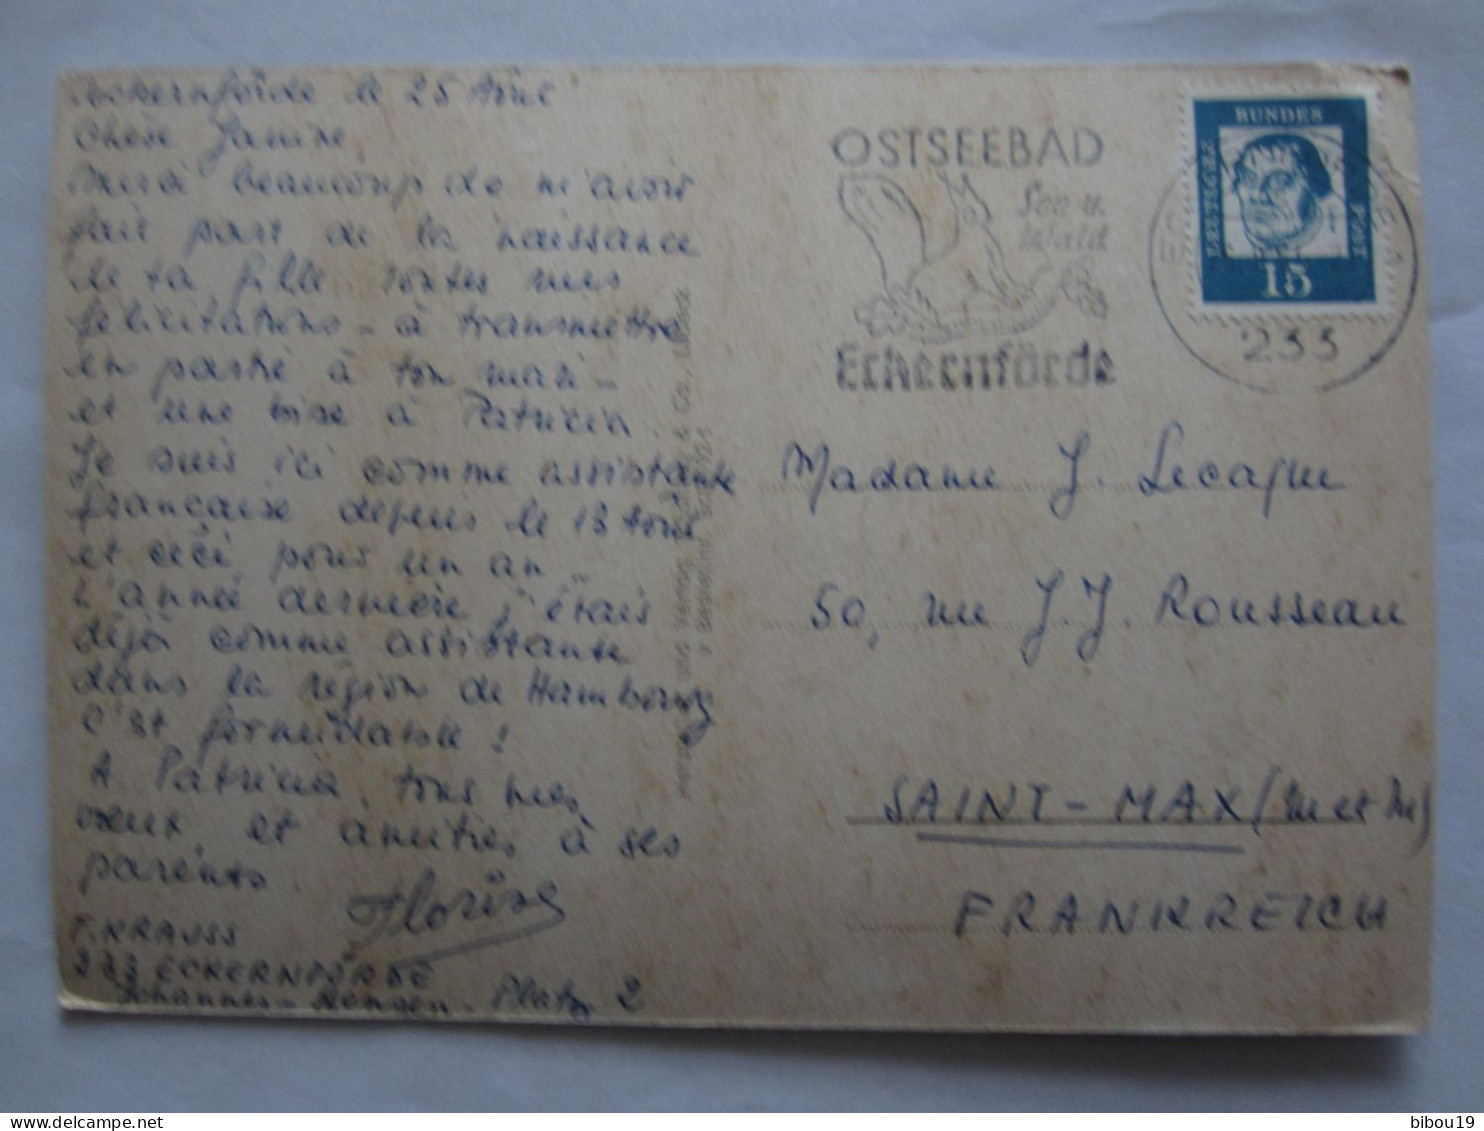 Eckernförde le 25 Août
Chère Janine,
Merci beaucoup de m'avoir
fait part de la naissance
de ta fille. Toutes mes
félicitations - à transmettre
en partie à ton mari -
et une bise à Patricia
Je suis ici comme assistante
française depuis le 18 Août
et ceci pour un an.
L'année dernière j'étais
déjà comme assistante
dans la région de Hambourg
C'est formidable !
A Patricia, tous mes
vœux et amitiés à ses
parents.
Florine
F. KRAUSS
233 ECKERNFÖRDE
Johannes-Hansen-Platz 2
und Verlag & Co., Lübeck
OSTSEEBAD
See u.
Wald
Eckernförde
DEUTSCHE
BUNDES
POST
15
233
Madame J. Lecaque
50, rue J.J. Rousseau
SAINT-MAX (M et M)
FRANKREICH
bibou19